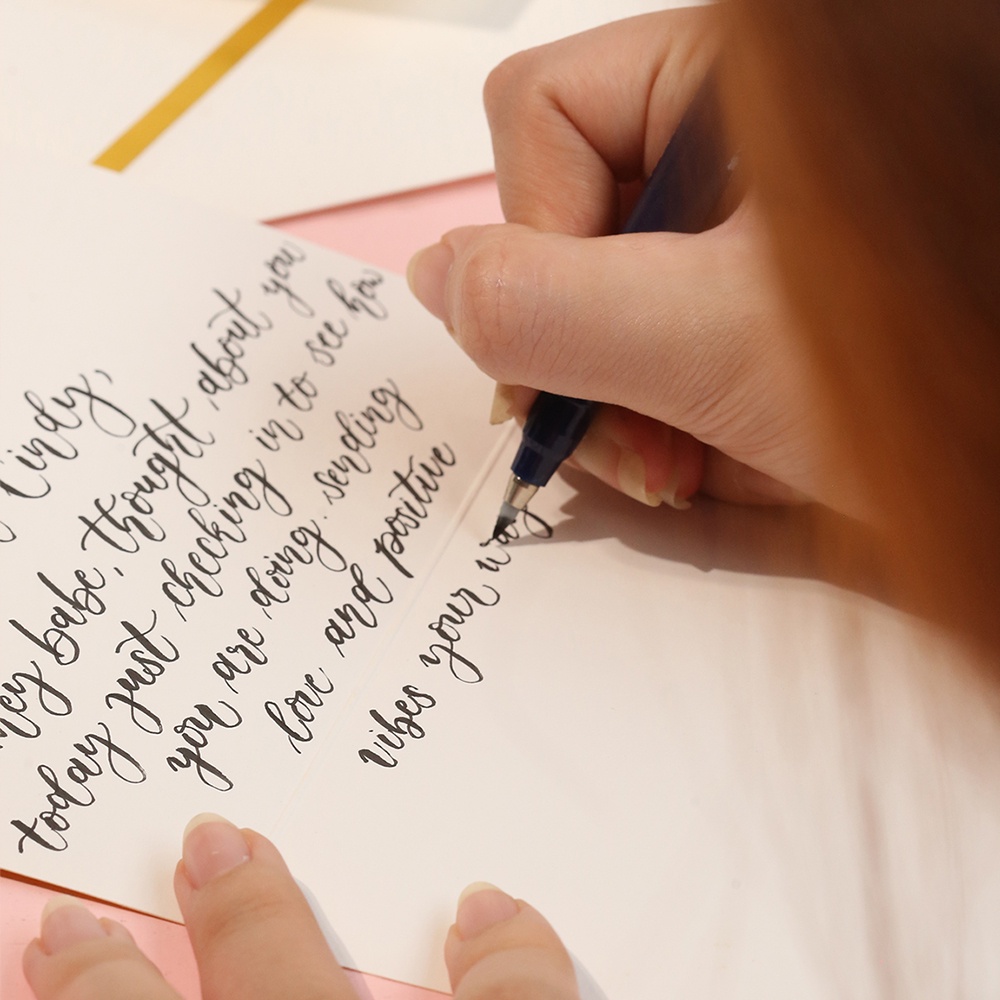 Cindy,
hey babe, thought about you
today just checking in to see how
you are doing. sending
love and positive
vibes your way